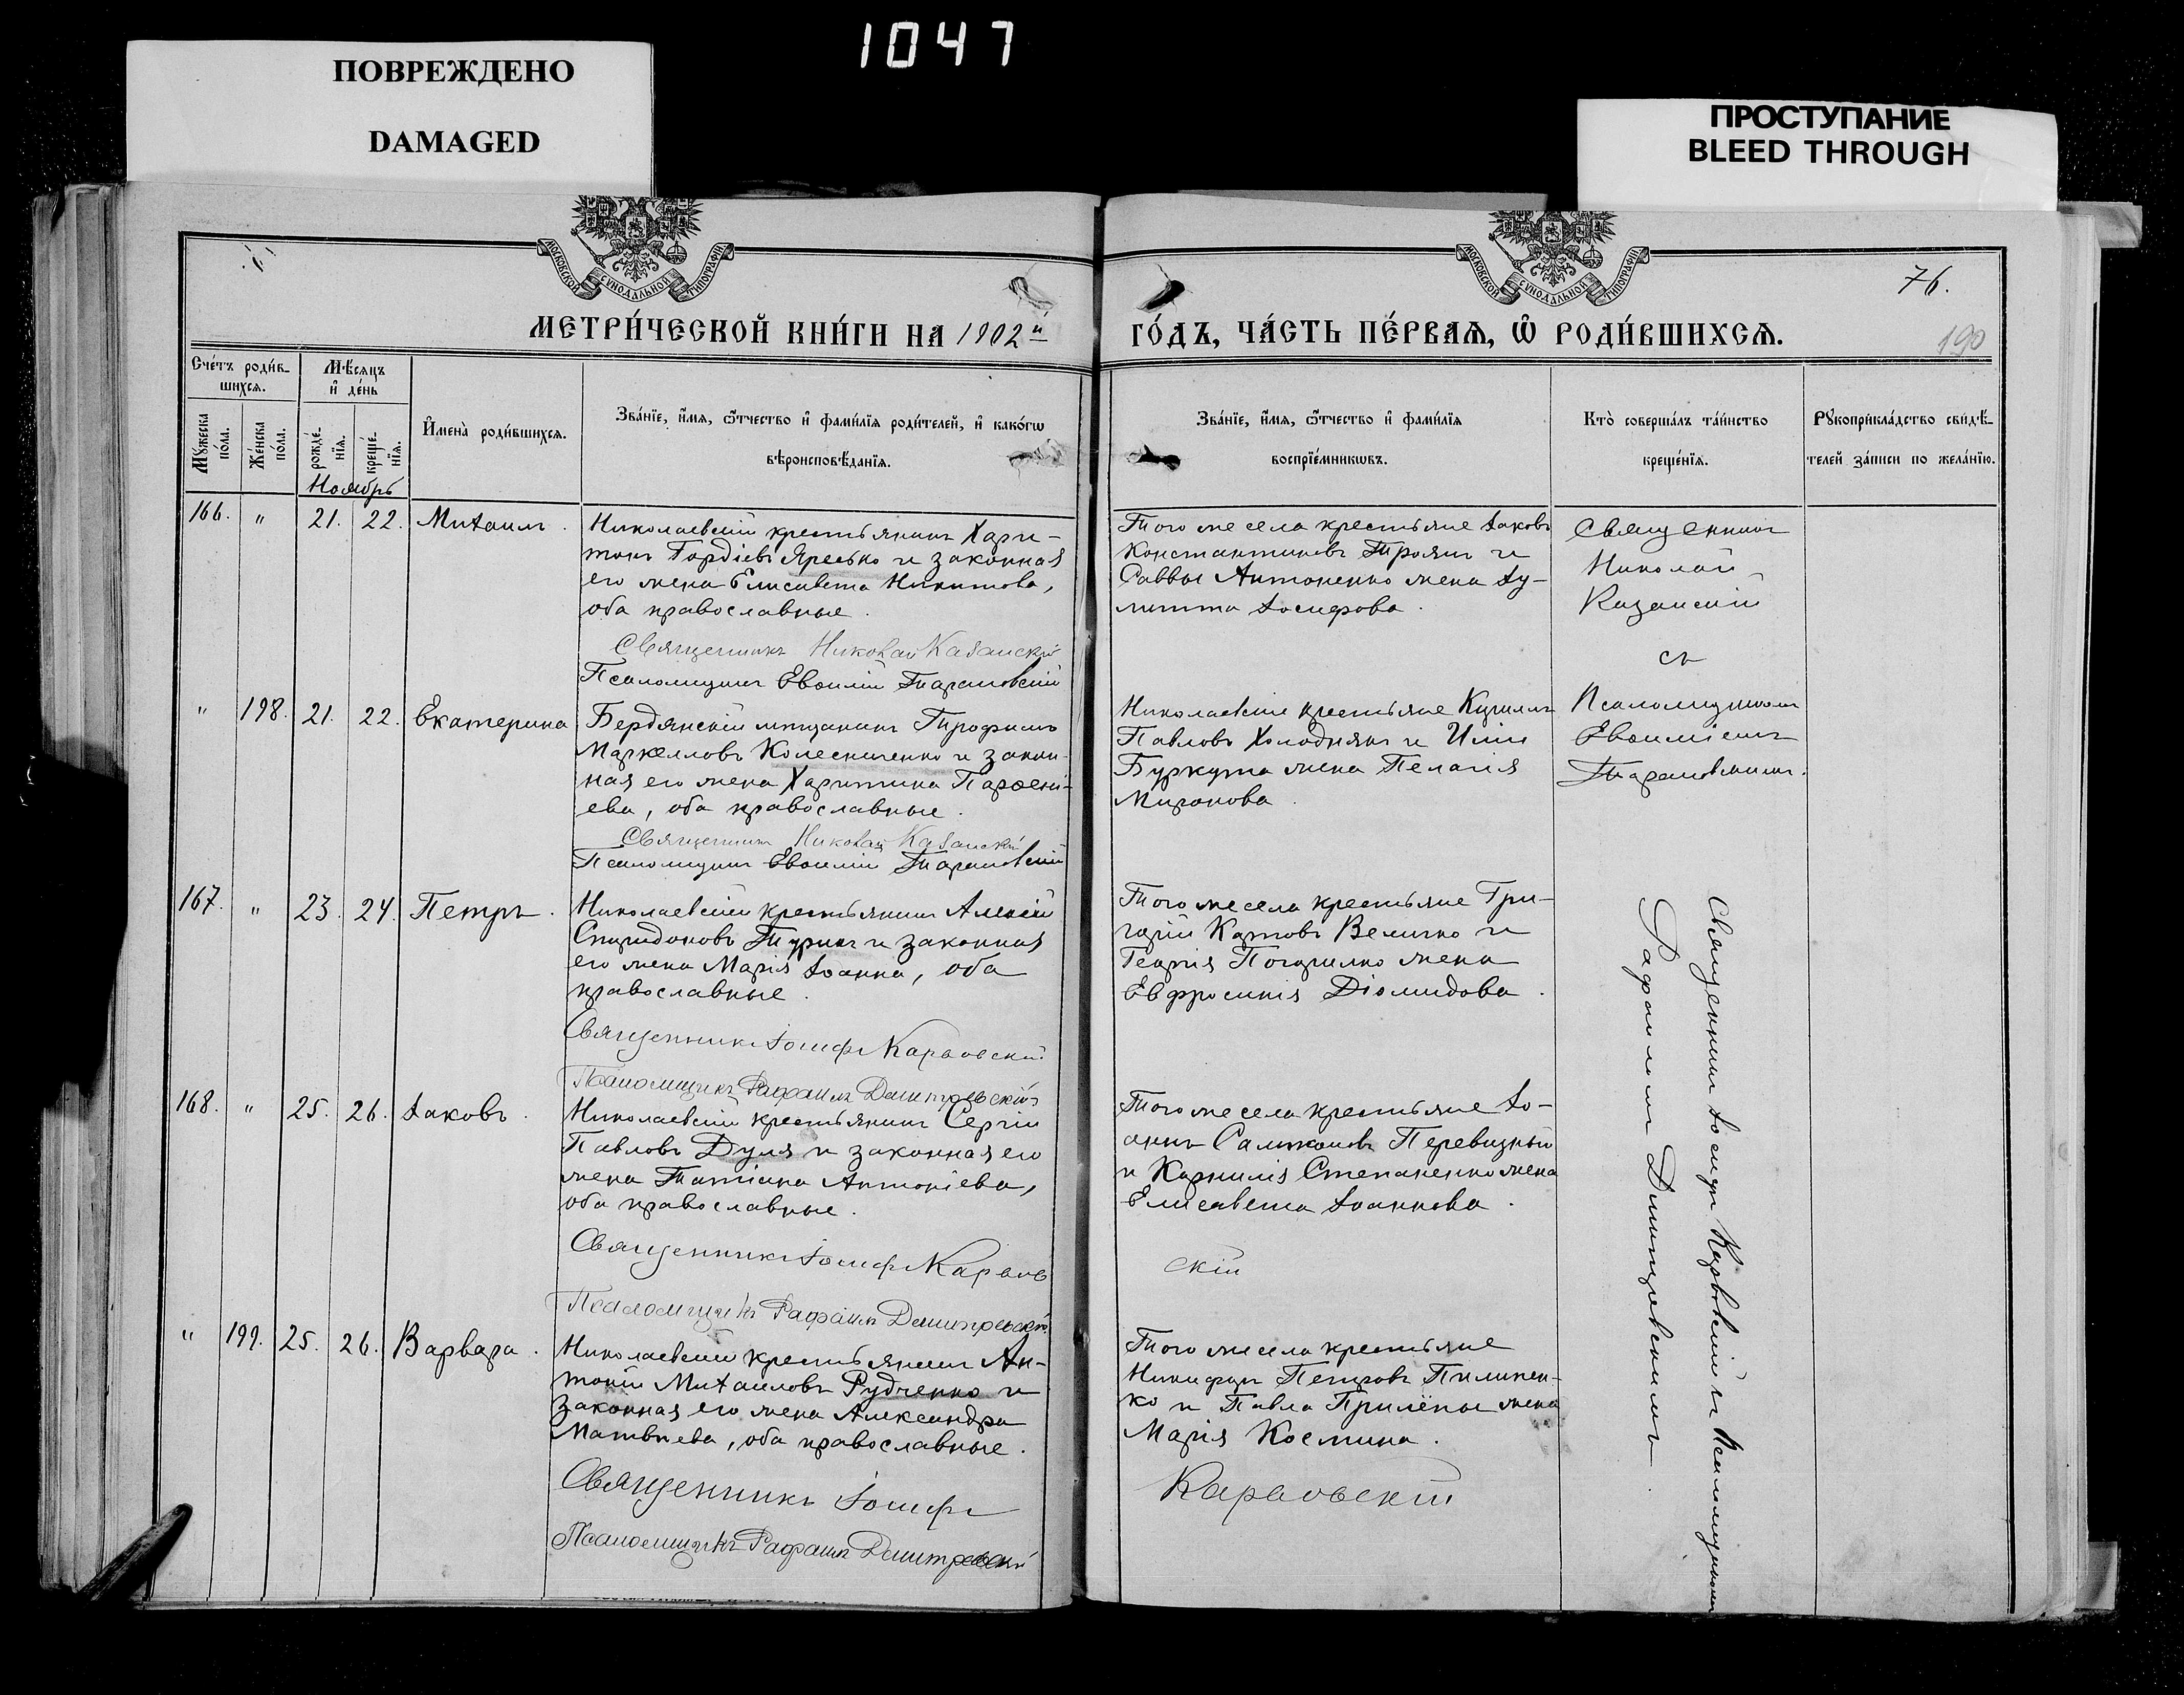 1047
ПОВРЕЖДЕНО
DAMAGED
ПРОСТУПАНИЕ
BLEED THROUGH
МОСКОВСКОЙ СѴНОДАЛЬНОЙ ТИПОГРАФІИ
МОСКОВСКОЙ СѴНОДАЛЬНОЙ ТИПОГРАФІИ
76.
190
МЕТРИ́ЧЕСКОЙ КНИ́ГИ НА 1902й
ГО́ДЪ, ЧА́СТЬ ПЕ́РВАѦ, Ѡ҆ РОДИ́ВШИХСѦ.
Сче́тъ роди́в-
шихсѧ.
Мꙋ́жеска по́ла.
Же́нска по́ла.
Мѣ́сѧцъ
и҆ де́нь
рожде́-
нїѧ.
креще́-
нїѧ.
Ноябрь
И҆мена̀ роди́вшихсѧ.
Зва́нїе, и҆́мѧ, ѻ҆́тчество и҆ фами́лїѧ роди́телей, и҆ како́гѡ
вѣроисповѣ́данїѧ.
Зва́нїе, и҆́мѧ, ѻ҆́тчество и҆ фами́лїѧ
воспрїе́мникѡвъ.
Кто̀ соверша́лъ та́инство
креще́нїѧ.
Рꙋкоприкла́дство свидѣ́-
телей за́писи по жела́нїю.
166. " 21. 22. Михаилъ.
Николаевскій крестьянинъ Хари-
тонъ Гордіевъ Яресько и законная
его жена Елисавета Никитова,
оба православные.
Священникъ Николай Казанскій
Псаломщикъ Евфимій Тарановскій
Того же села крестьяне Іаковъ
Константиновъ Троянъ и
Саввы Антоненко жена Іу-
литта Іосифова.
Священникъ
Николай
Казанскій
съ
Псаломщикомъ
Евфиміемъ
Тарановскимъ.
" 198. 21. 22. Екатерина
Бердянскій мѣщанинъ Трофимъ
Маркелловъ Колесниченко и закон-
ная его жена Харитина Парфені-
ева, оба православные.
Священникъ Николай Казанскій
Псаломщикъ Евфимій Тарановскій
Николаевскіе крестьяне Кириллъ
Павловъ Холоднякъ и Иліи
Буркута жена Пелагія
Миронова.
167. " 23. 24. Петръ.
Николаевскій крестьянинъ Алексій
Спиридоновъ Туринъ и законная
его жена Марія Іоанна, оба
православные.
Священникъ Іосифъ Карвовскій
Псаломщикъ Рафаилъ Димитровскій
Того же села крестьяне Гри-
горій Карповъ Величко и
Георгія Погорилко жена
Евфросинія Діомидова.
Священникъ Іосифъ Карвовскій съ Псаломщикомъ
Рафаиломъ Димитровскимъ.
168. " 25. 26. Іаковъ.
Николаевскій крестьянинъ Сергій
Павловъ Дуля и законная его
жена Татіана Антоніева,
оба православные.
Священникъ Іосифъ Карвов
скій
Псаломщикъ Рафаилъ Димитровскій
Того же села крестьяне Іо-
аннъ Перевизный
и Корнилія Степаненко жена
Елисавета Іоаннова.
" 199. 25. 26. Варвара.
Николаевскій крестьянинъ Ан-
тоній Михаиловъ Рудченко и
законная его жена Александра
Матвѣева, оба православные.
Священникъ Іосифъ
Карвовскій
Псаломщикъ Рафаилъ Димитровскій
Того же села крестьяне
Никифоръ Петровъ Пилипен-
ко и Павла Прилѣпы жена
Марія Космина.